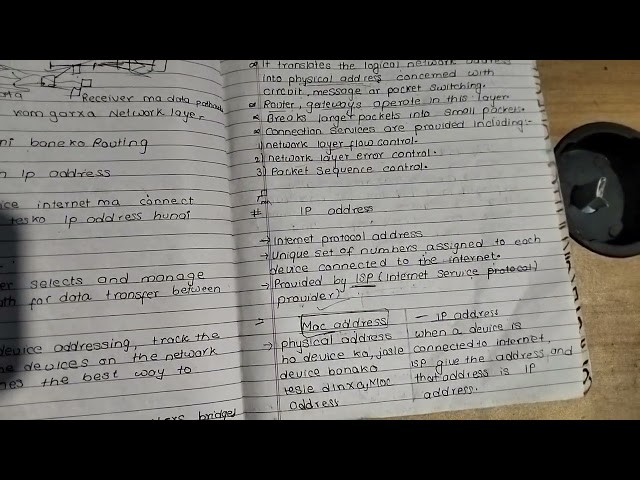 ata
Receiver ma data pathauda
kam garxa Network layer
ni baneko Routing
n Ip address
ice internet ma connect
tesko Ip address hunai
er selects and manage
th for data transfer between
device addressing, track the
e devices on the network
nes the best way to
bridges
It translates the logical network address
into physical address concerned with
circuit, message or packet switching.
Router, gateways operate in this layer
Breaks larget packets into small packets.
Connection services are provided including:-
1) network layer flow control.
2) network layer error control.
3) Packet sequence control.
# IP address
→ Internet protocol address
→ Unique set of numbers assigned to each
device connected to the internet.
→ Provided by ISP (Internet service protocol)
provider)
Mac address
→ physical address
ho device ka, jasle
device banako
tesle dinxa, Mac
address
— IP address
when a device is
connected to internet,
ISP give the address and
that address is IP
address.